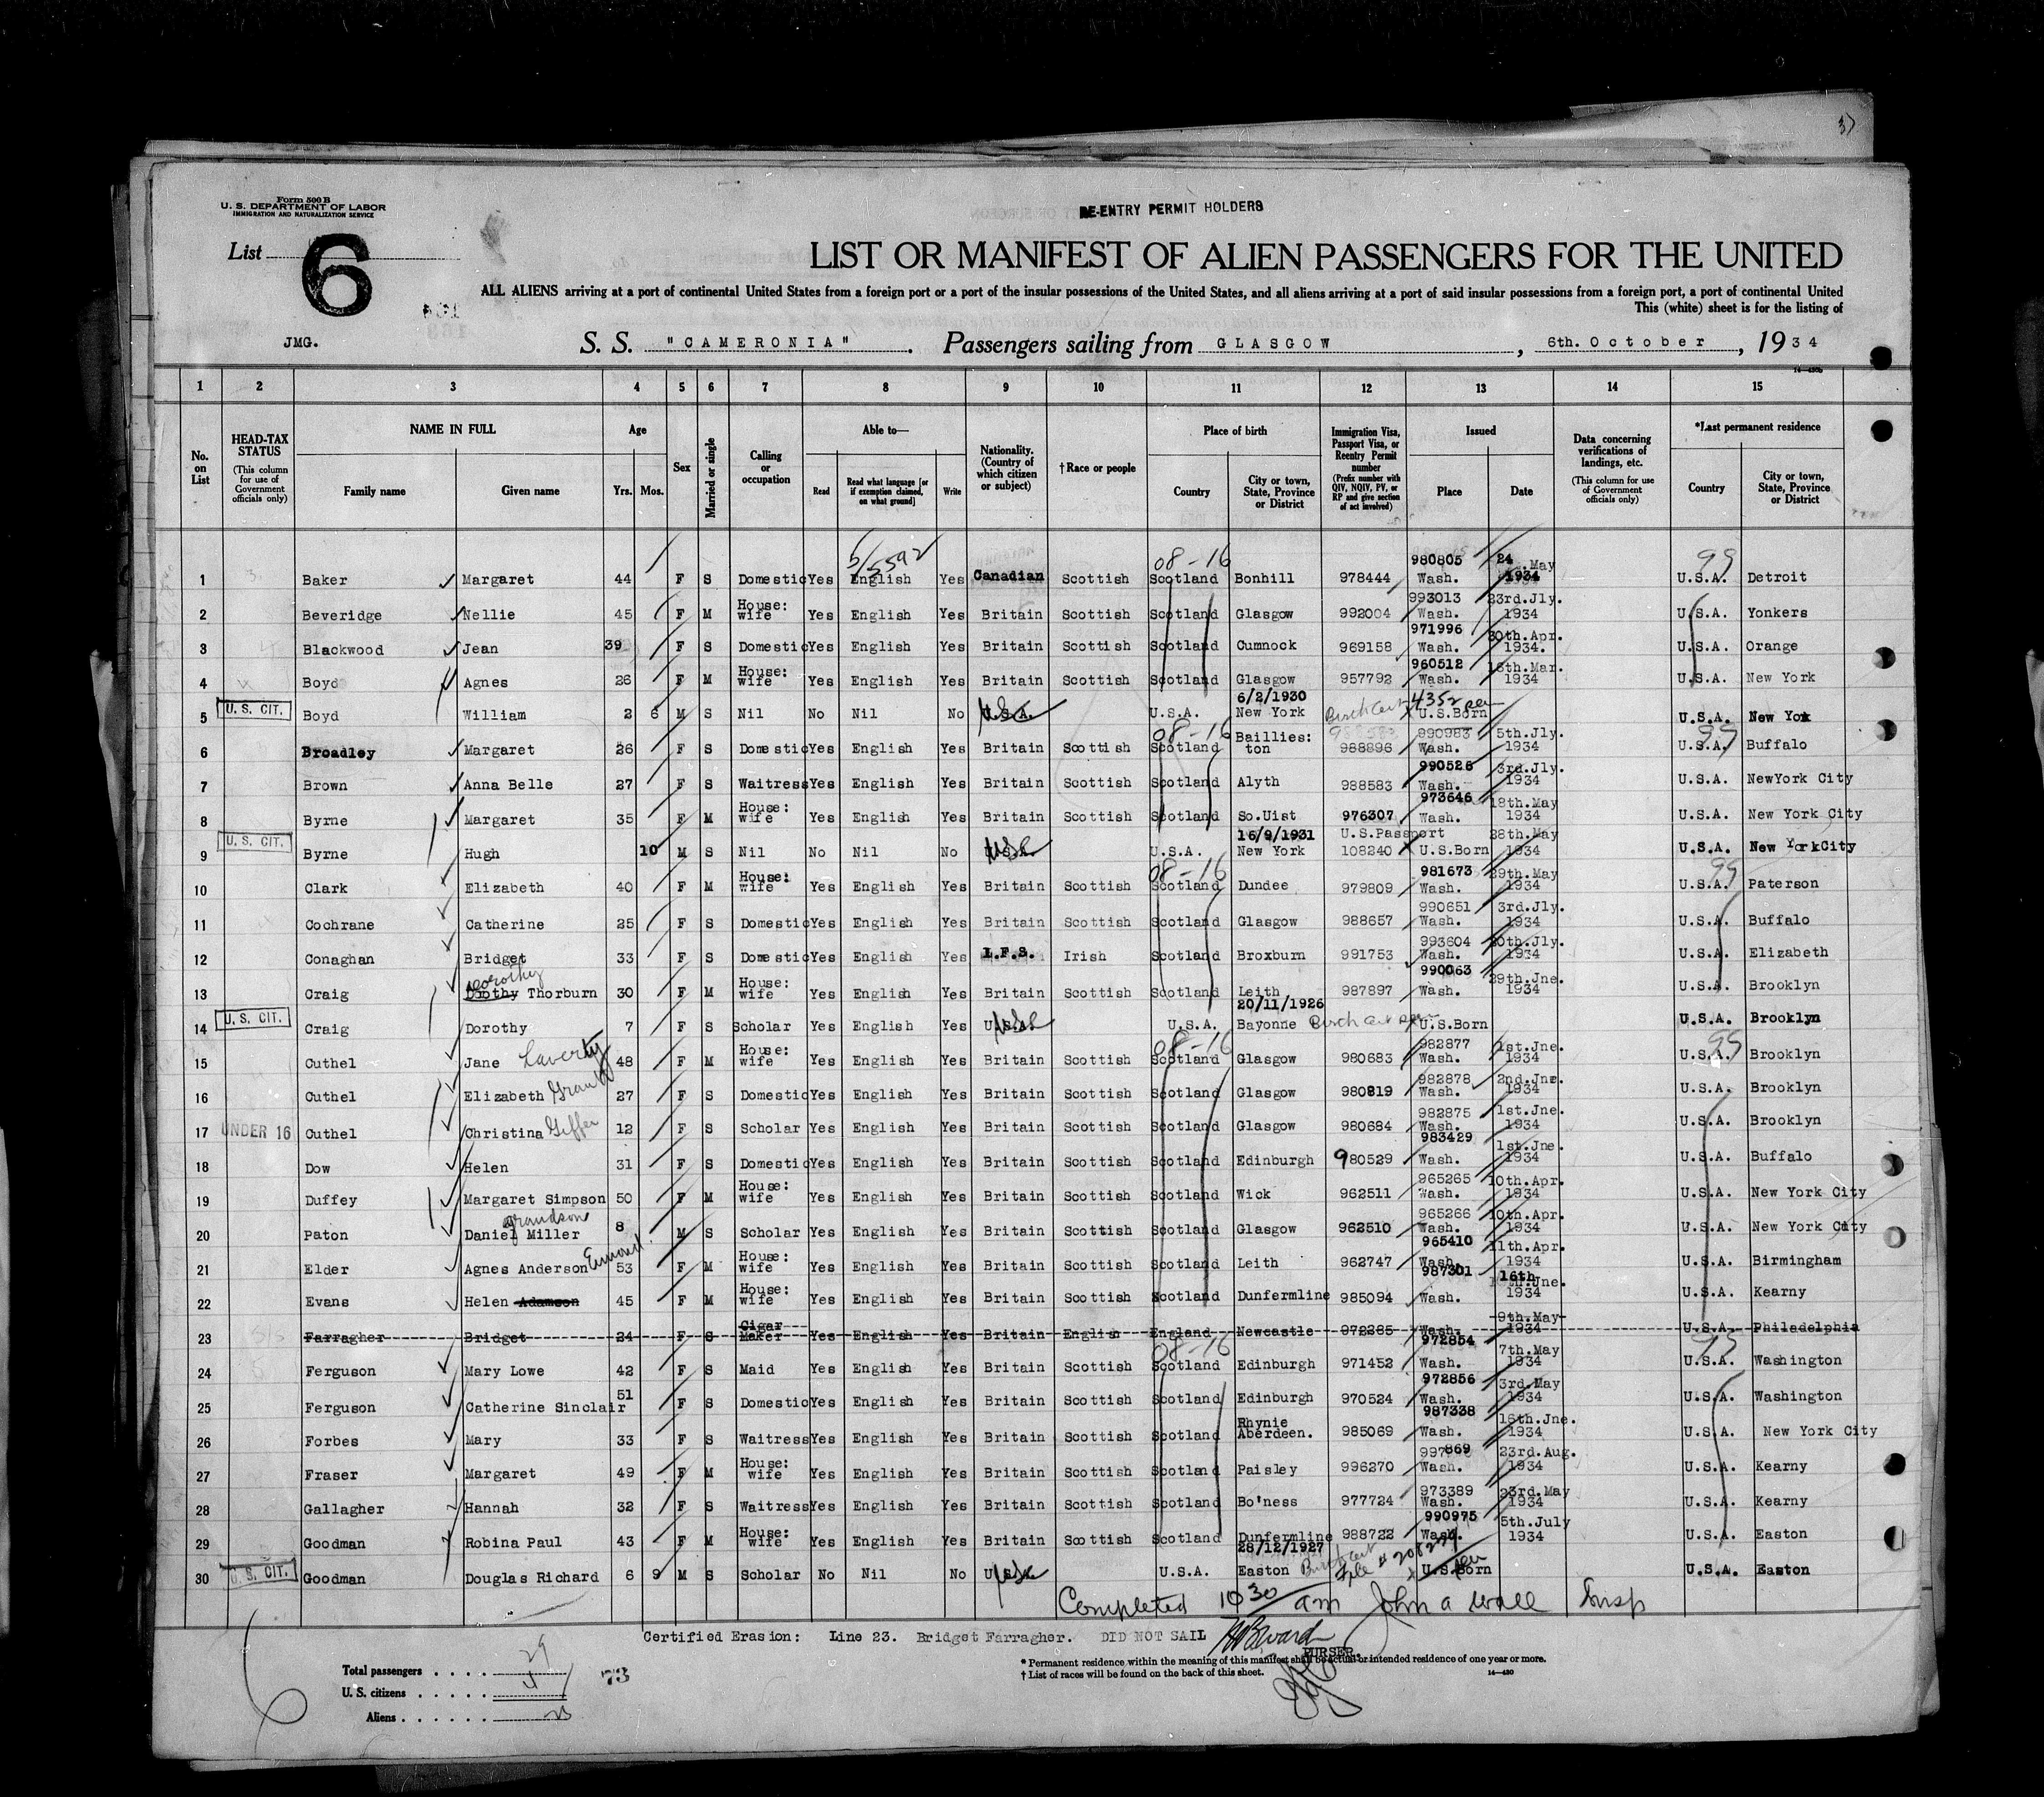 37
Form 500 B
U. S. DEPARTMENT OF LABOR
IMMIGRATION AND NATURALIZATION SERVICE
RE-ENTRY PERMIT HOLDERS
List 6
LIST OR MANIFEST OF ALIEN PASSENGERS FOR THE UNITED
ALL ALIENS arriving at a port of continental United States from a foreign port or a port of the insular possessions of the United States, and all aliens arriving at a port of said insular possessions from a foreign port, a port of continental United
This (white) sheet is for the listing of
JMG. S. S. "CAMERONIA". Passengers sailing from GLASGOW, 6th. October, 1934
14-430b
1 2 3 4 5 6 7 8 9 10 11 12 13 14 15
No. on List
HEAD-TAX STATUS (This column for use of Government officials only)
NAME IN FULL Family name Given name
Age Yrs. Mos.
Sex
Married or single
Calling or occupation
Able to— Read Read what language [or if exemption claimed, on what ground] Write
Nationality. (Country of which citizen or subject)
†Race or people
Place of birth Country City or town, State, Province or District
Immigration Visa, Passport Visa, or Reentry Permit number (Prefix number with QIV, NQIV, PV, or RP and give section of act involved)
Issued Place Date
Data concerning verifications of landings, etc. (This column for use of Government officials only)
*Last permanent residence Country City or town, State, Province or District
5/5592 08-16 99
1 Baker Margaret 44 F S Domestic Yes English Yes Canadian Scottish Scotland Bonhill 978444 980805 Wash. 24 May 1934 U.S.A. Detroit
2 Beveridge Nellie 45 F M House: wife Yes English Yes Britain Scottish Scotland Glasgow 992004 993013 Wash. 23rd.Jly. 1934 U.S.A. Yonkers
3 Blackwood Jean 39 F S Domestic Yes English Yes Britain Scottish Scotland Cumnock 969158 971996 Wash. 30th.Apr. 1934. U.S.A. Orange
4 Boyd Agnes 26 F M House: wife Yes English Yes Britain Scottish Scotland Glasgow 957792 960512 Wash. 13th.Mar. 1934 U.S.A. New York
5 U. S. CIT. Boyd William 2 6 M S Nil No Nil No U.S.A. U.S.A. 6/2/1930 New York Birch Cert 4352 U.S.Born U.S.A. New Yok
08-16 99
6 Broadley Margaret 26 F S Domestic Yes English Yes Britain Scottish Scotland Baillies: ton 988896 990983 Wash. 5th.Jly. 1934 U.S.A. Buffalo
7 Brown Anna Belle 27 F S Waitress Yes English Yes Britain Scottish Scotland Alyth 988583 990526 Wash. 3rd.Jly. 1934 U.S.A. NewYork City
8 Byrne Margaret 35 F M House: wife Yes English Yes Britain Scottish Scotland So.Uist 976307 973646 Wash. 18th.May 1934 U.S.A. New York City
9 U. S. CIT. Byrne Hugh 10 M S Nil No Nil No U.S.A. U.S.A. 16/9/1931 New York U.S.Passport 108240 U.S.Born 28th.May 1934 U.S.A. New York City
08-16 99
10 Clark Elizabeth 40 F M House: wife Yes English Yes Britain Scottish Scotland Dundee 979809 981673 Wash. 29th.May 1934 U.S.A. Paterson
11 Cochrane Catherine 25 F S Domestic Yes English Yes Britain Scottish Scotland Glasgow 988657 990651 Wash. 3rd.Jly. 1934 U.S.A. Buffalo
12 Conaghan Bridget 33 F S Domestic Yes English Yes I.F.S. Irish Scotland Broxburn 991753 993604 Wash. 20th.Jly. 1934 U.S.A. Elizabeth
13 Craig Dorothy Dothy Thorburn 30 F M House: wife Yes English Yes Britain Scottish Scotland Leith 987897 990063 Wash. 29th.Jne. 1934 U.S.A. Brooklyn
14 U. S. CIT. Craig Dorothy 7 F S Scholar Yes English Yes U.S.A. U.S.A. 20/11/1926 Bayonne Birch Cert U.S.Born U.S.A. Brooklyn
08-16 99
15 Cuthel Jane Laverty 48 F M House: wife Yes English Yes Britain Scottish Scotland Glasgow 980683 982877 Wash. 1st.Jne. 1934 U.S.A. Brooklyn
16 Cuthel Elizabeth Grant 27 F S Domestic Yes English Yes Britain Scottish Scotland Glasgow 980819 982878 Wash. 2nd.Jne. 1934 U.S.A. Brooklyn
17 UNDER 16 Cuthel Christina Giffen 12 F S Scholar Yes English Yes Britain Scottish Scotland Glasgow 980684 982875 Wash. 1st.Jne. 1934 U.S.A. Brooklyn
18 Dow Helen 31 F S Domestic Yes English Yes Britain Scottish Scotland Edinburgh 980529 983429 Wash. 1st.Jne. 1934 U.S.A. Buffalo
19 Duffey Margaret Simpson 50 F M House: wife Yes English Yes Britain Scottish Scotland Wick 962511 965265 Wash. 10th.Apr. 1934 U.S.A. New York City
20 Paton Daniel Miller grandson 8 M S Scholar Yes English Yes Britain Scottish Scotland Glasgow 962510 965266 Wash. 10th.Apr. 1934 U.S.A. New York City
21 Elder Agnes Anderson 53 F M House: wife Yes English Yes Britain Scottish Scotland Leith 962747 965410 Wash. 11th.Apr. 1934 U.S.A. Birmingham
22 Evans Helen Adamson 45 F M House: wife Yes English Yes Britain Scottish Scotland Dunfermline 985094 987301 Wash. 16th Jne. 1934 U.S.A. Kearny
23 Farragher Bridget 24 F S Cigar Maker Yes English Yes Britain English England Newcastle 972285 Wash. 9th.May 1934 U.S.A. Philadelphia
08-16
24 Ferguson Mary Lowe 42 F S Maid Yes English Yes Britain Scottish Scotland Edinburgh 971452 972854 Wash. 7th.May 1934 U.S.A. Washington
25 Ferguson Catherine Sinclair 51 F S Domestic Yes English Yes Britain Scottish Scotland Edinburgh 970524 972856 Wash. 3rd.May 1934 U.S.A. Washington
26 Forbes Mary 33 F S Waitress Yes English Yes Britain Scottish Scotland Rhynie Aberdeen. 985069 987338 Wash. 16th.Jne. 1934 U.S.A. New York City
27 Fraser Margaret 49 F M House: wife Yes English Yes Britain Scottish Scotland Paisley 996270 997869 Wash. 23rd.Aug. 1934 U.S.A. Kearny
28 Gallagher Hannah 32 F S Waitress Yes English Yes Britain Scottish Scotland Bo'ness 977724 973389 Wash. 23rd.May 1934 U.S.A. Kearny
29 Goodman Robina Paul 43 F M House: wife Yes English Yes Britain Scottish Scotland Dunfermline 988722 990975 Wash. 5th.July 1934 U.S.A. Easton
30 U. S. CIT. Goodman Douglas Richard 6 9 M S Scholar No Nil No U.S.A. U.S.A. 28/12/1927 Easton Birch Cert File # 208274 U.S.Born U.S.A. Easton
Completed 10 30 am John A Wall Insp
Certified Erasion: Line 23. Bridget Farragher. DID NOT SAIL
PURSER.
Total passengers . . . . 29
U. S. citizens . . . . .
Aliens . . . . . .
73
6
* Permanent residence within the meaning of this manifest shall be actual or intended residence of one year or more.
† List of races will be found on the back of this sheet.
14-430